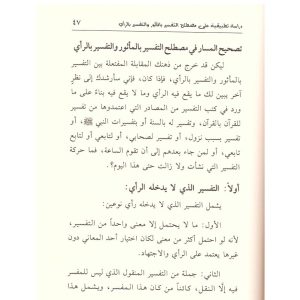 دراسة تطبيقية على مصطلح التفسير بالأثر والتفسير بالرأي ٤٧
تصحيح المسار في مصطلح التفسير بالمأثور والتفسير بالرأي
ليكن قد خرج من ذهنك المقابلة المفتعلة بين التفسير
بالمأثور والتفسير بالرأي، فإذا كان، فإني سأرشدك إلى نظر
آخر يبين لك ما يقع فيه الرأي وما لا يقع فيه بناءً على ما
ورد في كتب التفسير من المصادر التي اعتمدوها من تفسير
للقرآن بالقرآن، وتفسير له بالسنة أو بتفسيرات النبي ﷺ، أو
تفسير بسبب نزول، أو تفسير لصحابي، أو لتابعي أو لتابع
تابعي أو لمن جاء بعدهم إلى أن تقوم الساعة، فما حركة
التفسير التي نشأت ولا زالت حتى هذا اليوم؟.
أولاً: التفسير الذي لا يدخله الرأي:
يشمل التفسير الذي لا يدخله رأي نوعين:
الأول: ما لا يحتمل إلا معنى واحداً من التفسير،
لأنه لو احتمل أكثر من معنى لكان اختيار أحد المعاني دون
غيرها يعتمد على الرأي والاجتهاد.
الثاني: جملة من التفسير المنقول الذي ليس للمفسر
فيه إلَّا النقل، كائناً من كان هذا المفسر، ويشمل هذا